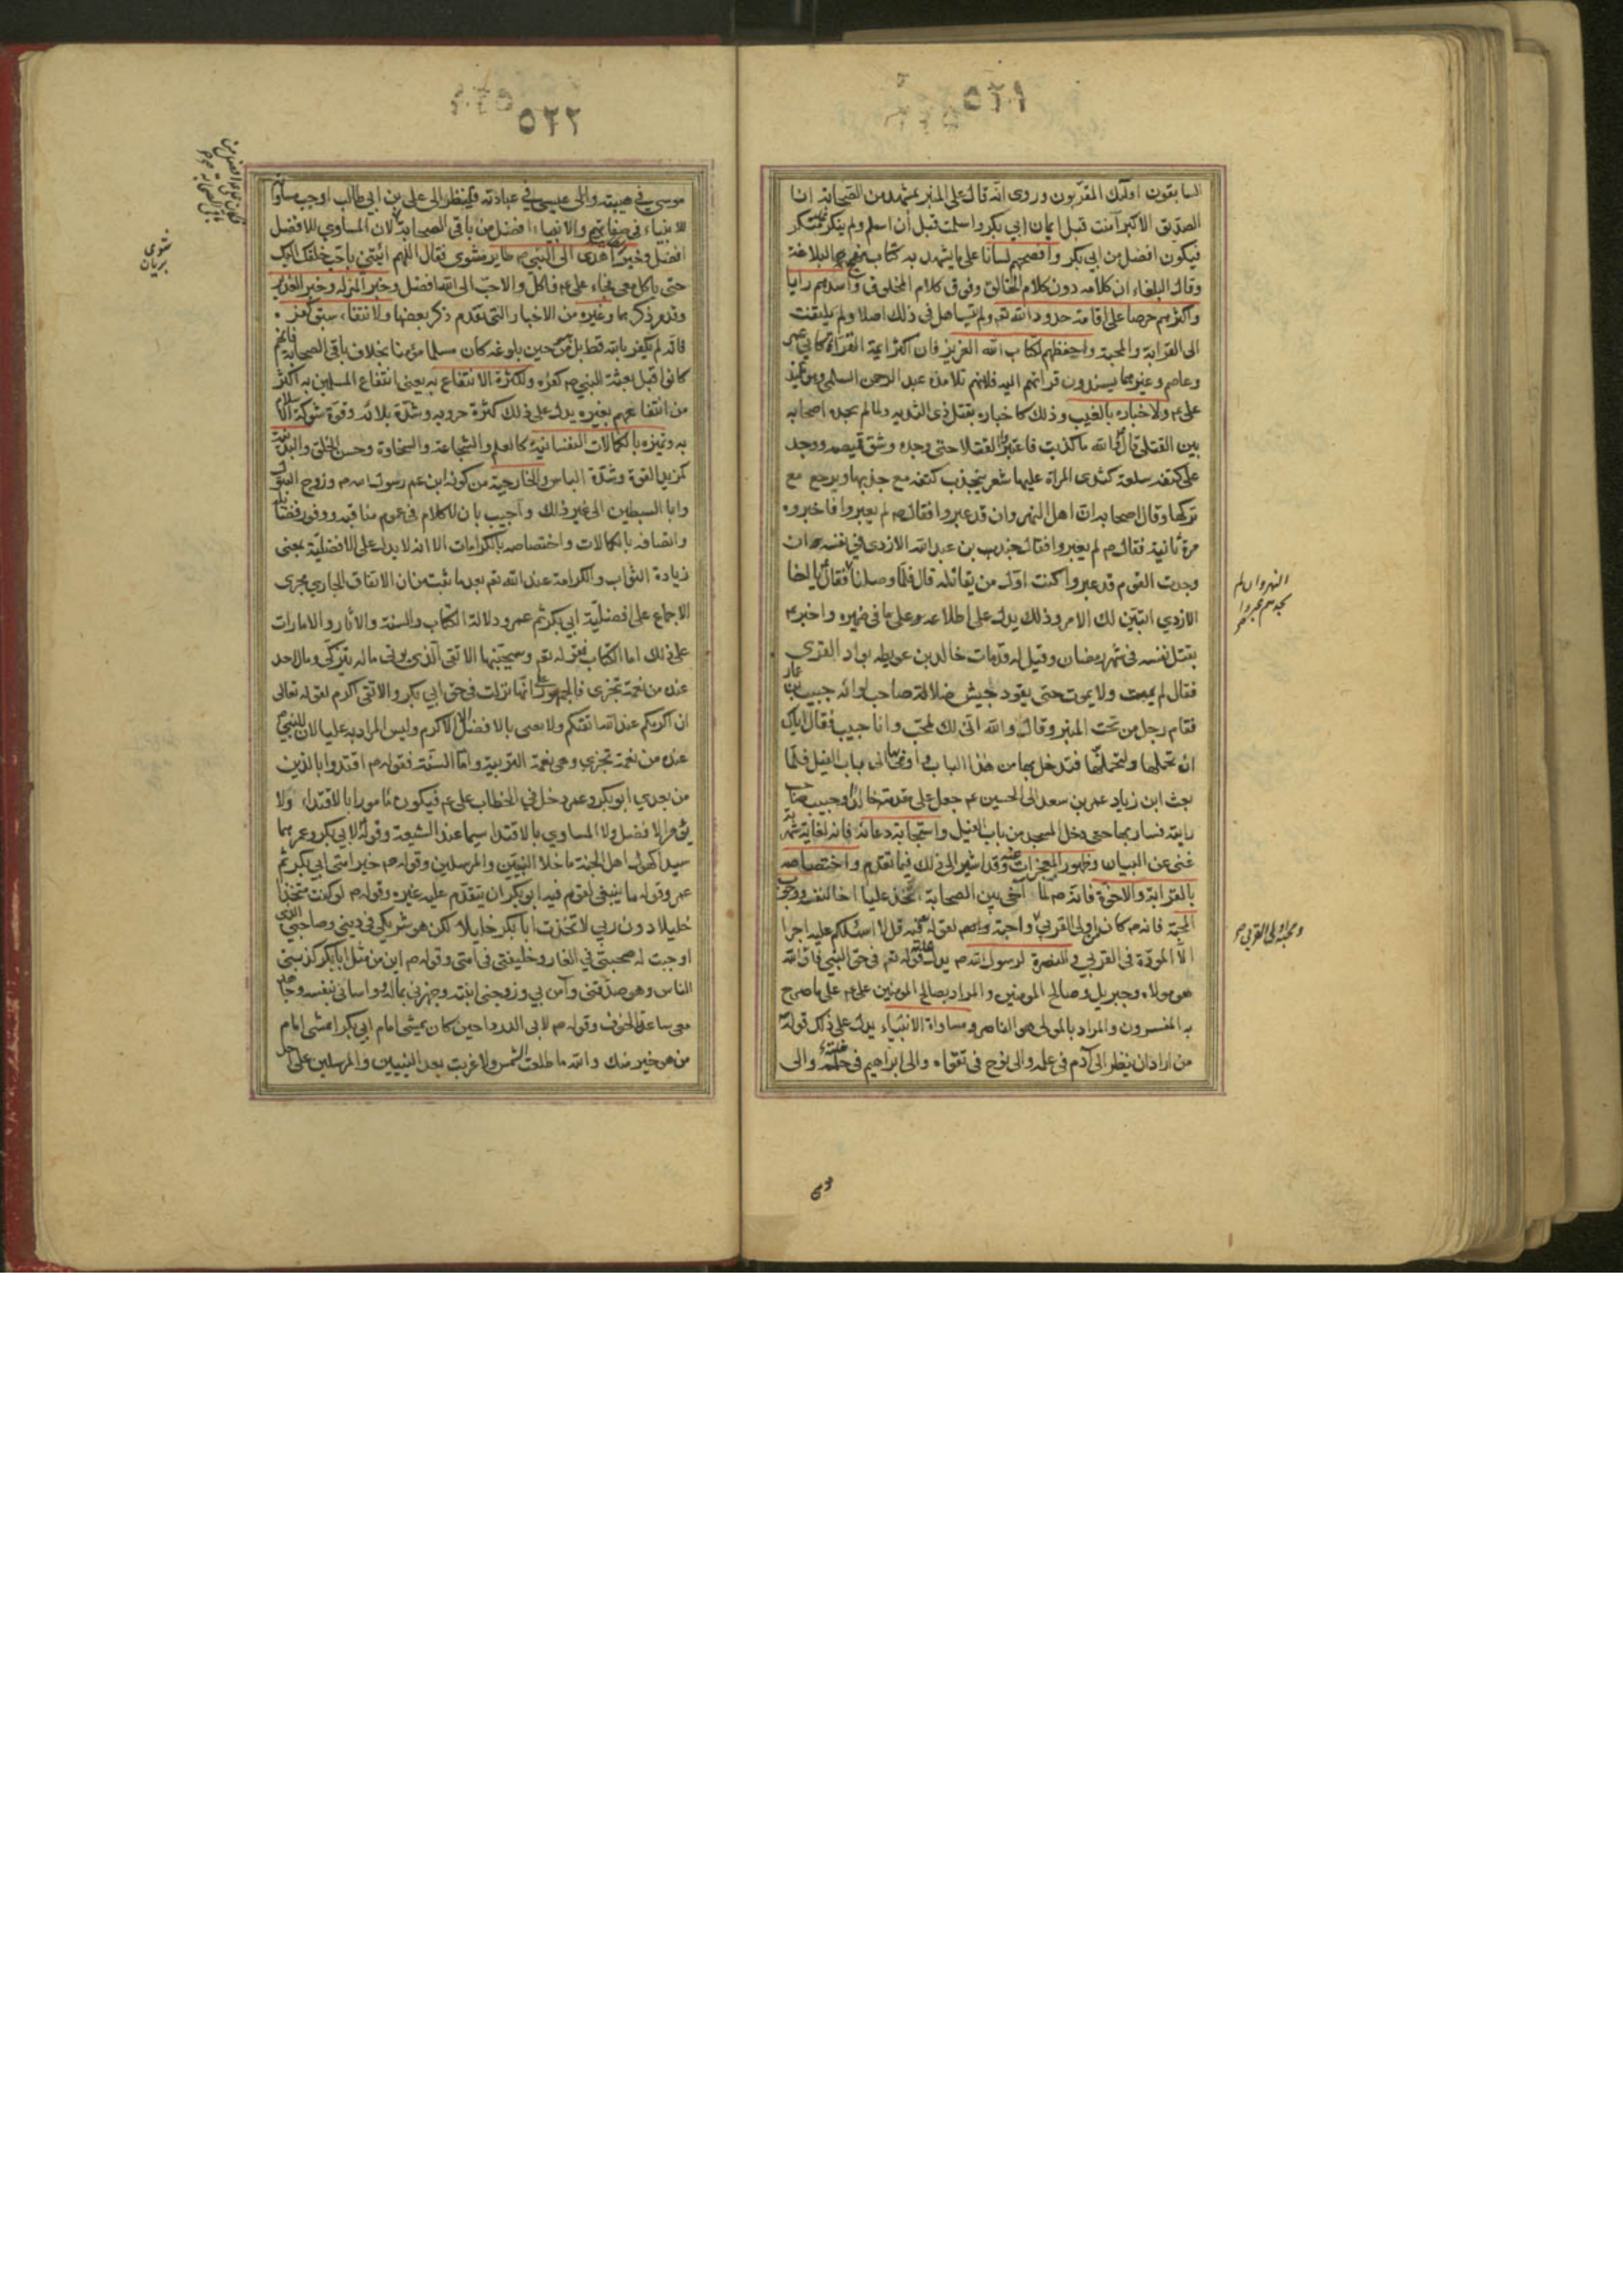 ٥٢١
السابقون اولئك المقربون وروى انه قال على المنبر بمشهد من الصحابة انا
الصديق الاكبر آمنت قبل ايمان ابي بكر واسلمت قبل أن اسلم ولم ينكر عليه منكر
فيكون افضل من ابي بكر وافصحهم لسانا على ما يشهد به كتاب نهج البلاغة
وقال البلغاء ان كلامه دون كلام الخالق وفوق كلام المخلوق واسدهم رايا
واكثرهم حرصا على اقامة حدود الله تعم ولم يتساهل في ذلك اصلا ولم يلتفت
الى القرابة والمحبة واحفظهم لكتاب الله العزيز فان اكثر ايمة القراة كابي عمر
وعاصم وغيرهما يسندون قراتهم اليه فانهم تلامذة عبد الرحمن السلمي وهو تلميذ
على عم ولاخباره بالغيب وذلك كاخباره بقتل ذي الثديه ولما لم يجده اصحابه
بين القتلى قال والله ما كذبت فاعتبر القتلا حتى وجده وشق قميصه ووجد
على كتفه سلعة كثدى المراة عليها شعر ينجذب كتفه مع جذبها ويرجع مع
تركها وقال اصحابه ان اهل النهروان قد عبروا فقال عم لم يعبروا فاخبروه
مرة ثانية فقال عم لم يعبروا فقال جندب بن عبد الله الازدي في نفسه ان
وجدت القوم قد عبروا كنت اول من يقاتله قال فلما وصلنا فقال يا اخا
الازدي اتبين لك الامر وذلك يدل على اطلاعه على ما في ضميره واخبر عم
بقتل نفسه في شهر رمضان وقيل له قد مات خالد بن عويطه بواد القرى
فقال لم يمت ولا يموت حتى يقود جيش ضلالة صاحب لوائه حبيب بن عمار
فقام رجل من تحت المنبر وقال والله انى لك لمحب وانا حبيب فقال اياك
ان تحملها ولتحملنها فتدخل بها من هذا الباب واومى الى باب الفيل فلما
بعث ابن زياد عمر بن سعد الى الحسين عم جعل على مقدمته خالدا وحبيب صاحب
رايته فسار بها حتى دخل المسجد من باب الفيل واستجابة دعائه فانه لغاية شهرته
غنى عن البيان وظهور المعجزات عنه وقد اشير الى ذلك فيما تقدم واختصاصه
بالقرابة والاخوة فانه صم لما آخى بين الصحابة اتخذ عليا اخا لنفسه ووجوب
المحبة فانه عم كان من اولى القربى ومحبة اولى القربى واجبة لقوله تعم قل لا اسئلكم عليه اجرا
الا المودة في القربى والنصرة لرسول الله صم يدل عليه قوله تعم في حق النبي فان الله
هو مولاه وجبريل وصالح المومنين والمراد بصالح المومنين على عم على ما صرح
به المفسرون والمراد بالمولى هو الناصر ومساواة الانبياء يدل على ذلك قوله
من اراد ان ينظر الى آدم في علمه والى نوح في تقواه والى ابراهيم في حلمه والى
النهروان لم
ومحبة اولى القربى صح
٥٢٢
موسى في هيبته والى عيسى في عبادته فلينظر الى على بن ابي طالب اوجب مساواته
للانبياء في صفاتهم والانبياء افضل من باقي الصحابة لان المساوي للافضل
افضل وخبر الطاير اهدى الى النبي صم طاير مشوى فقال اللهم ائتني باحب خلقك اليك
حتى ياكل معى فجاء على عم فاكل والاحب الى الله افضل وخبر المنزله وخبر الغدير
وقد مر ذكرهما وغيره من الاخبار التي تقدم ذكر بعضها ولانتفاء سبق كفره
فانه لم يكفر بالله قط بل من حين بلوغه كان مسلما مؤمنا بخلاف باقي الصحابة فانهم
كانوا قبل بعثة النبي صم كفره ولكثرة الانتفاع به يعنى انتفاع المسلمين به اكثر
من انتفاعهم بغيره يدل على ذلك كثرة حروبه وشدة بلائه وقوة شوكة الاسلام
به وتميزه بالكمالات النفسانية كالعلم والشجاعة والسخاوة وحسن الخلق والبدنية
كمزيد القوة وشدة الباس والخارجية من كونه ابن عم رسول الله صم وزوج البتول
وابا السبطين الى غير ذلك واجيب بان لا كلام في عموم مناقبه ووفور فضائله
واتصافه بالكمالات واختصاصه بالكرامات الا انه لا يدل على الافضلية بمعنى
زيادة الثواب والكرامة عند الله تعم بعد ما ثبت من ان الاتفاق الجاري مجرى
الاجماع على افضلية ابي بكر ثم عمر ودلالة الكتاب والسنة والآثار والامارات
على ذلك اما الكتاب فقوله تعم وسيجنبها الاتقى الذي يوتى ماله يتزكى وما لاحد
عنده من نعمة تجزى فالجمهور على انها نزلت في حق ابي بكر والاتقى اكرم لقوله تعالى
ان اكرمكم عند الله اتقيكم ولا يعنى بالافضل الا الاكرم وليس المراد به عليا لان للنبي صم
عنده من نعمة تجزى وهي نعمة التربية واما السنة فقوله صم اقتدوا بالذين
من بعدي ابو بكر وعمر دخل في الخطاب على عم فيكون مامورا بالاقتداء ولا
يؤمر الافضل ولا المساوي بالاقتدا سيما عند الشيعة وقوله لابي بكر وعمر هما
سيدا كهول اهل الجنة ما خلا النبيين والمرسلين وقوله صم خير امتى ابي بكر ثم
عمر وقوله ما ينبغي لقوم فيهم ابو بكر ان يتقدم عليه غيره وقوله صم لو كنت متخذا
خليلا دون ربي لاتخذت ابا بكر خليلا لكن هو شريكي في ديني وصاحبي الذي
اوجبت له صحبتي في الغار وخليفتى في امتى وقوله صم اين من مثل ابا بكر كذبني
الناس وهو صدقنى وآمن بي وزوجنى ابنته وجهزني بماله وواسانى بنفسه وجاهد
معى ساعة الخوف وقوله صم لابي الدردا حين كان يمشى امام ابي بكر اتمشى امام
من هو خير منك والله ما طلعت الشمس ولا غربت بعد النبيين والمرسلين على احد
مشوى
بريان